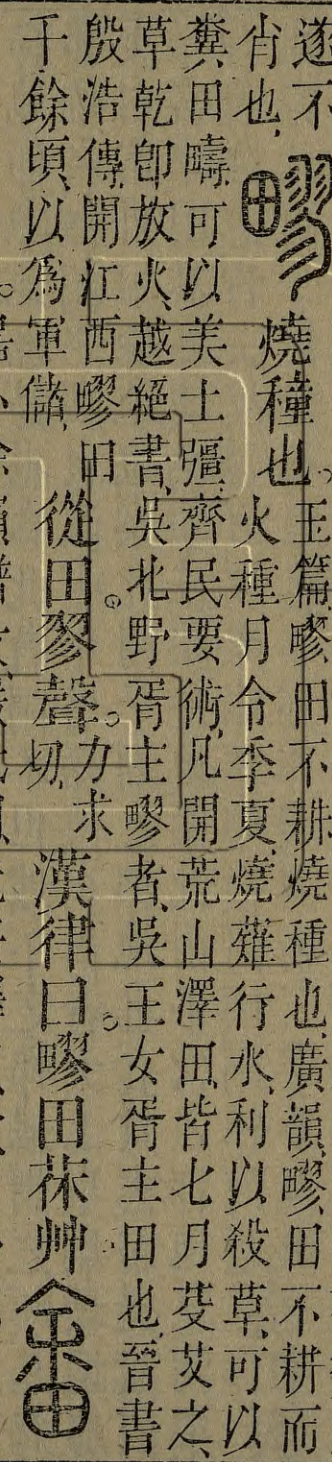 遂不
肖也
疁
燒穜也
玉篇疁田不耕燒種也廣韻疁田不耕而
火種月令季夏燒薙行水利以殺草可以
糞田疇可以美土彊齊民要術凡開荒山澤田皆七月芟艾之
草乾卽放火越絕書吳北野胥主疁者吳王女胥主田也晉書
殷浩傳開江西疁田
千餘頃以爲軍儲
從田翏聲
力求
切
漢律曰疁田茠艸
畬